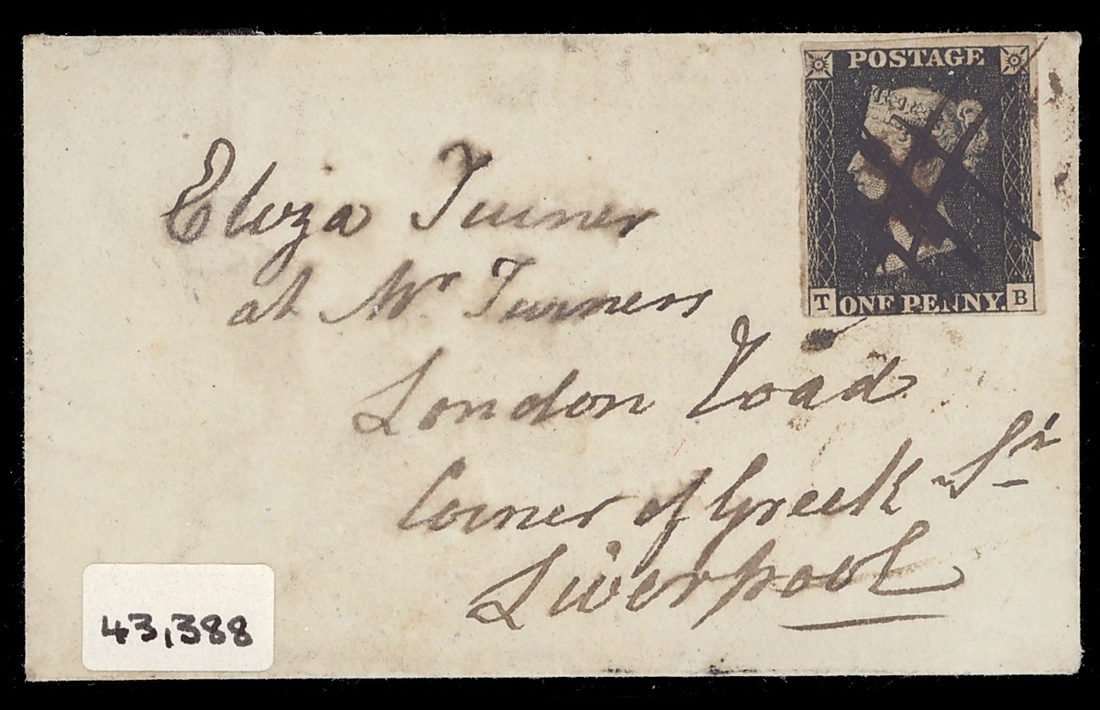 POSTAGE
T ONE PENNY. B
Eliza Turner
at Mr Turners
London Road
Corner of Greek St
Liverpool
43,388